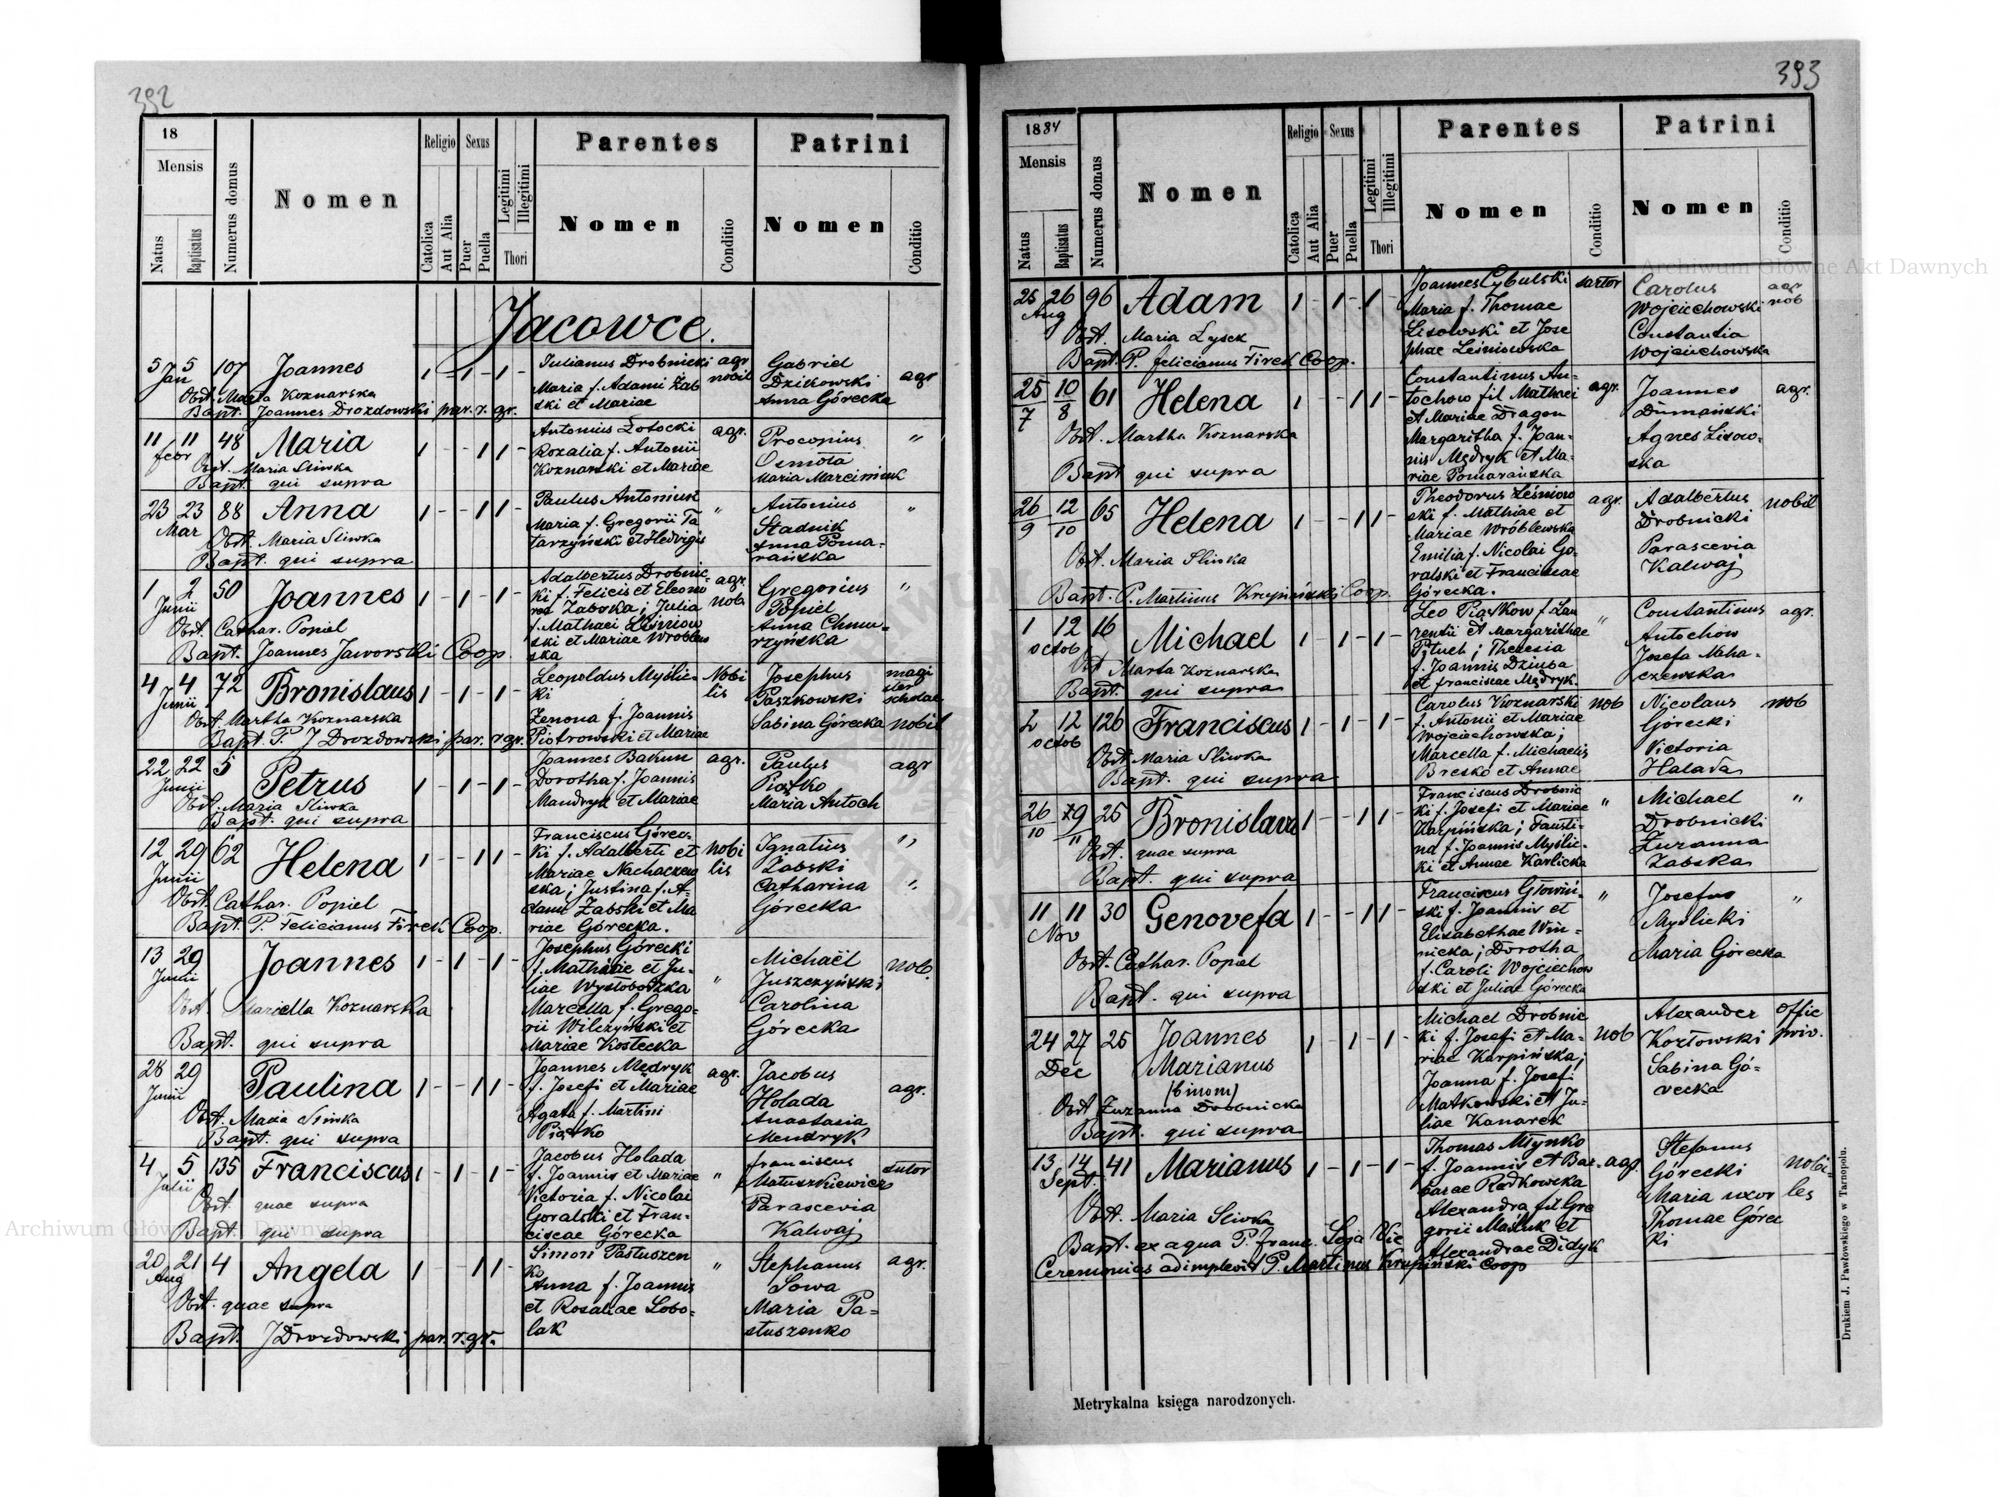 392
18
Mensis
Natus
Baptisatus
Numerus domus
Nomen
Religio
Catolica
Aut Alia
Sexus
Puer
Puella
Legitimi
Illegitimi
Thori
Parentes
Nomen
Conditio
Patrini
Nomen
Conditio
Jacowce.
5 5 107 Joannes 1 - 1 - 1 -
Jan
Obst. Marta Koznarska
Bapt. Joannes Drozdowski par. r. gr.
Julianus Drobnicki agr
Maria f. Adami Żab nobil
ski et Mariae
Gabriel
Dzikowski agr
Anna Górecka
11 11 48 Maria 1 - - 1 1 -
febr
Obst. Maria Sliwka
Bapt. qui supra
Antonius Łotocki agr.
Rozalia f. Antonii
Koznarski et Mariae
Procopius "
Osmota
Maria Marciniuk
23 23 88 Anna 1 - - 1 1 -
Mar
Obst. Maria Sliwka
Bapt. qui supra
Paulus Antoniuk "
Maria f. Gregorii Ta
tarzyński et Hedvigis
Antonius "
Stadnik
Anna Poma-
rańska
1 2 50 Joannes 1 - 1 - 1 -
Junii
Obst. Cathar. Popiel
Bapt. Joannes Jaworski Coop.
Adalbertus Drobnic-
ki f. Felicis et Eleono agr.
rae Zaborka; Julia nob
f. Mathaei Leśniow
ski et Mariae Wróblew
ska
Gregorius "
Popiel
Anna Chmu-
rzyńska
4 4 72 Bronislaus 1 - 1 - 1 -
Junii
Obst. Martha Koznarska
Bapt. P. J Drozdowski par. r. gr.
Leopoldus Myślic- Nobi
ki lis
Zenona f. Joannis
Piotrowski et Mariae
Josephus magi
Paszkowski ster
scholae
Sabina Górecka nobil
22 22 5 Petrus 1 - 1 - 1 -
Junii
Obst. Maria Sliwka
Bapt. qui supra
Joannes Bakun agr.
Dorotha f. Joannis
Mandryk et Mariae
Paulus agr
Piątko
Maria Antoch
12 29 62 Helena 1 - - 1 1 -
Junii
Obst. Cathar. Popiel
Bapt. P. Felicianus Firek Coop.
Franciscus Górec-
ki f. Adalberti et nobi
Mariae Nachaczew lis
ska; Justina f. A-
dami Żabski et Ma
riae Górecka.
Ignatius "
Żabski
Catharina "
Górecka
13 29 Joannes 1 - 1 - 1 -
Junii
Obst. Marcella Koznarska
Bapt. qui supra
Josephus Górecki
f. Mathiae et Ju-
liae Wysłobodzka "
Marcella f. Grego-
rii Wilczyński et
Mariae Kostecka
Michaël nob.
Juszczyński
Carolina
Górecka
28 29 Paulina 1 - - 1 1 -
Junii
Obst. Maria Sliwka
Bapt. qui supra
Joannes Mędryk agr.
f. Josefi et Mariae
Agata f. Martini
Piątko
Jacobus agr.
Holada
Anastasia
Mendryk
4 5 135 Franciscus 1 - 1 - 1 -
Julii
Obst. quae supra
Bapt. qui supra
Jacobus Holada
f. Joannis et Mariae "
Victoria f. Nicolai
Goralski et Fran-
ciscae Górecka
franciscus sutor
Matuszkiewicz
Parascevia
Kalwaj
20 21 4 Angela 1 - - 1 1 -
Aug
Obst. quae supra
Bapt. J Drozdowski par. r. gr.
Simon Pastuszen "
ko
Anna f. Joannis
et Rosaliae Lobo-
lak
Stephanus agr.
Sowa
Maria Pa-
stuszenko
393
1884
Mensis
Natus
Baptisatus
Numerus domus
Nomen
Religio
Catolica
Aut Alia
Sexus
Puer
Puella
Legitimi
Illegitimi
Thori
Parentes
Nomen
Conditio
Patrini
Nomen
Conditio
25 26 96 Adam 1 - 1 - 1 -
Aug
Obst. Maria Łysek
Bapt. P. felicianus Firek Coop.
Joannes Cybulski sartor
Maria f. Thomae
Lisowski et Jose
phae Leśniowska
Carolus agr
Wojciechowski nob
Constantia
Wojciechowska
25 10 61 Helena 1 - - 1 1 -
7 8
Obst. Martha Koznarska
Bapt qui supra
Constantinus An- agr.
tochow fil Mathaei
et Mariae Dragon
Margaritha f. Joan-
nis Mędryk et Ma-
riae Pomarańska
Joannes agr.
Dumański
Agnes Lisow-
ska
26 12 65 Helena 1 - - 1 1 -
9 10
Obst. Maria Slinka
Bapt. P. Martinus Krupiński Coop.
Theodorus Leśniow agr.
ski f. Mathiae et
Mariae Wróblewska
Emilia f. Nicolai Go-
ralski et Franciscae
Górecka.
Adalbertus nobil
Drobnicki
Parascevia
Kalwaj
1 12 16 Michael 1 - 1 - 1 -
octob
Obst. Marta Koznarska
Bapt. qui supra
Leo Piąskow f. Lau "
rentii et Margarithae
Ptuch; Theresia
f. Joannis Dziuba
et franciscae Mędryk.
Constantinus agr.
Antochow
Josefa Naha-
czewska
2 12 126 Franciscus 1 - 1 - 1 -
octob
Obst. Maria Sliwka
Bapt. qui supra
Carolus Koznarski nob
f. Antonii et Mariae
Wojciechowska;
Marcella f. Michaelis
Bresko et Annae
Nicolaus nob
Górecki
Victoria
Halada
26 9 25 Bronislava 1 - - 1 1 -
10 11
Obst. quae supra
Bapt. qui supra
Franciscus Drobnic
ki f. Josefi et Mariae "
Karpińska; Fausti-
na f. Joannis Myślic-
ki et Annae Karlicka
Michael "
Drobnicki
Zuzanna
Żabska
11 11 30 Genovefa 1 - - 1 1 -
Nov
Obst. Cathar. Popiel
Bapt. qui supra
Franciscus Głowiń- "
ski f. Joannis et
Elisabethae Win-
nicka; Dorotha
f. Caroli Wojciechow
ski et Juliae Górecka
Josefus "
Myślicki
Maria Górecka
24 27 25 Joannes 1 - 1 - 1 -
Dec Marianus
(binom)
Obst Zuzanna Drobnicka
Bapt. qui supra
Michael Drobnic
ki f. Josefi et Ma- nob
riae Karpińska;
Joanna f. Josefi
Matkowski et Ju-
liae Kanarek
Alexander offic
Kozłowski priv.
Sabina Gó-
recka
13 14 41 Marianus 1 - 1 - 1 -
Sept.
Obst. Maria Sliwka
Bapt. ex aqua P. franc. Soja Vic
Ceremonias adimplevit P. Martinus Krupiński Coop
Thomas Młynko
f. Joannis et Bar- agr.
barae Radkowska
Alexandra fil Gre
gorii Maśluk et
Alexandrae Didyk
Stefanus
Górecki nobi-
Maria uxor les
Thomae Górec
ki
Metrykalna księga narodzonych.
Drukiem J. Pawłowskiego w Tarnopolu.
Archiwum Główne Akt Dawnych
Archiwum Główne Akt Dawnych